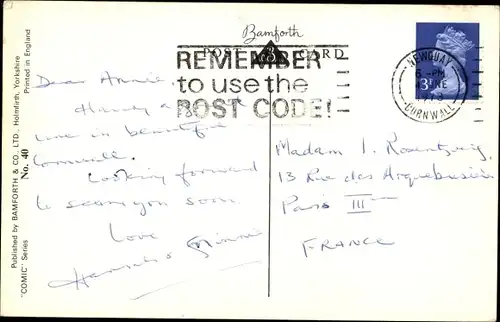 Published by BAMFORTH & CO., LTD., Holmfirth, Yorkshire
"COMIC" Series
No. 40
Printed in England
Bamforth
POST CARD
REMEMBER
to use the
POST CODE!
NEWQUAY
6 -PM
NE
CORNWALL
Dear Annie
Having a
time in beautiful
Cornwall.
Looking forward
to seeing you soon.
Love
Madam I. Rosentzveig,
13 Rue des Arquebusiers
Paris III
FRANCE